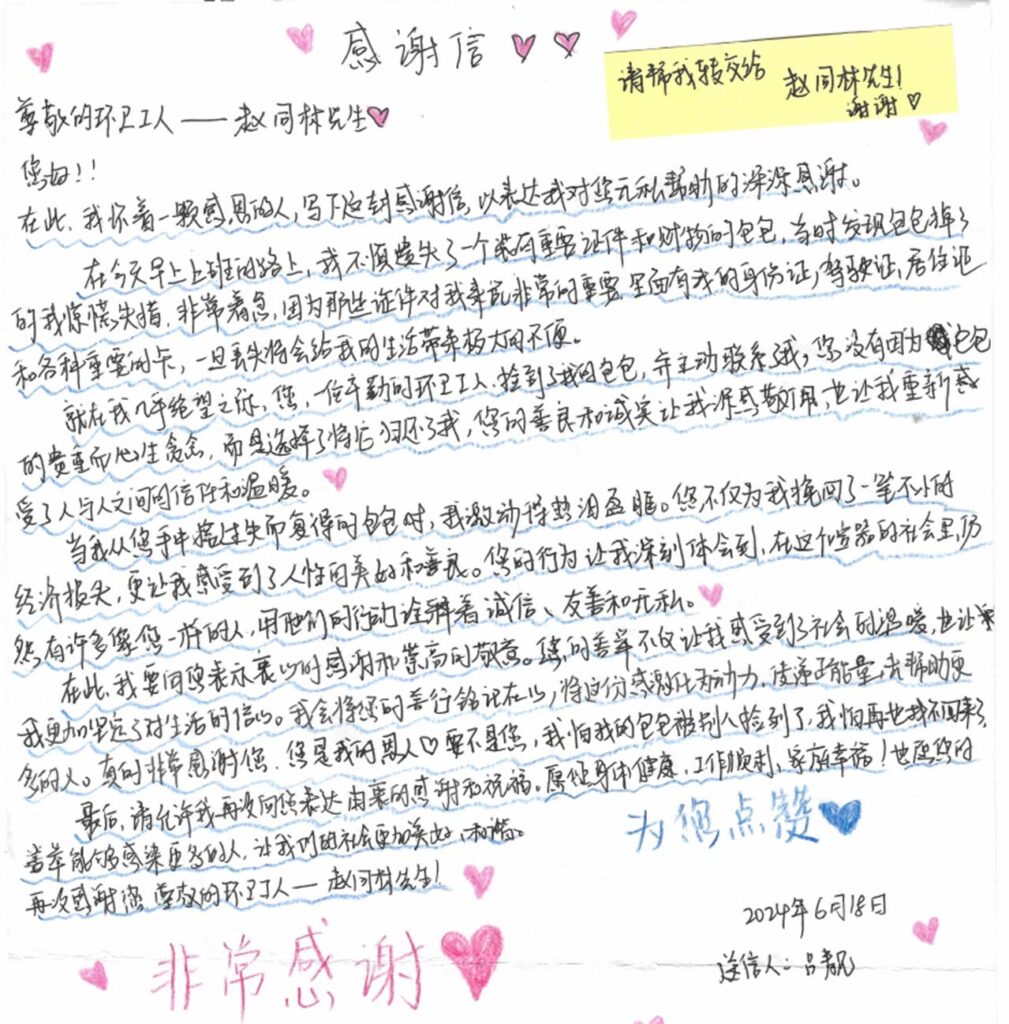 感谢信
请帮我转交给
赵同林先生!
谢谢
尊敬的环卫工人——赵同林先生
您好!!
在此,我怀着一颗感恩的人,写下这封感谢信,以表达我对您无私帮助的深深感谢。
在今天早上上班的路上,我不慎遗失了一个装有重要证件和财物的包包,当时发现包包掉了
的我惊慌失措,非常着急,因为那些证件对我来说非常的重要,里面有我的身份证,驾驶证,居住证
和各种重要的卡,一旦丢失将会给我的生活带来极大的不便。
就在我几乎绝望之际,您,一位辛勤的环卫工人,捡到了我的包包,并主动联系我,您没有因为包包
的贵重而心生贪念,而是选择了将它归还了我,您的善良和诚实让我深感敬佩,也让我重新感
受了人与人之间的信任和温暖。
当我从您手中接过失而复得的包包时,我激动得热泪盈眶。您不仅为我挽回了一笔不小的
经济损失,更让我感受到了人性的美好和善良。您的行为让我深刻体会到,在这个喧嚣的社会里,仍
然有许多像您一样的人,用他们的行的诠释着诚信、友善和无私。
在此,我要向您表示衷心的感谢和崇高的敬意。您的善举不仅让我感受到了社会的温暖,也让
我更加坚定了对生活的信心。我会将您的善行铭记在心,将这份感激化为动力,传递正能量,去帮助更
多的人。真的非常感谢您,您是我的恩人♡要不是您,我怕我的包包被别人捡到了,我怕再也找不回来了
最后,请允许我再次向您表达由衷的感谢和祝福。愿您身体健康,工作顺利,家庭幸福!也愿您的
善举能够感染更多的人,让我们的社会更加美好、和谐。
为您点赞
再次感谢您,尊敬的环卫工人——赵同林先生!
2024年6月18日
送信人:吕靓
非常感谢